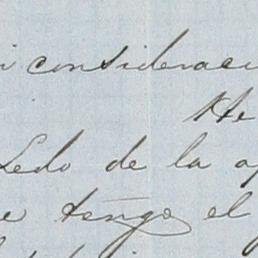 i consideraci
He
Ledo de la a
e tengo el